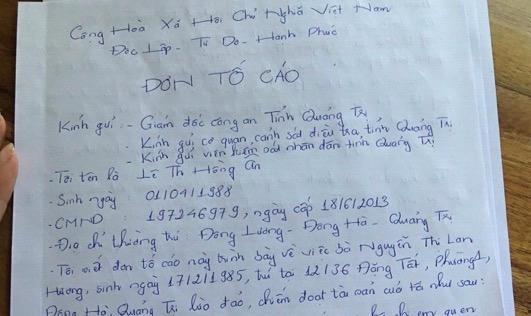 Cộng Hoà Xã Hội Chủ Nghĩa Việt Nam
Độc Lập - Tự Do - Hạnh Phúc
ĐƠN TỐ CÁO
Kính gửi: - Giám đốc công an Tỉnh Quảng Trị
- Kính gửi cơ quan, cảnh sát điều tra, tỉnh Quảng Trị
- Kính gửi viện kiểm sát nhân dân tỉnh Quảng Trị
- Tôi tên là Lê Th Hồng Ân
- Sinh ngày : 01/04/1988
- CMND : 197246979, ngày cấp 18/6/2013
- Địa chỉ thường trú Đông Lương - Đông Hà - Quảng Trị
- Tôi viết đơn tố cáo này trình bày về việc bà Nguyễn Thị Lan
Hương, sinh ngày 17/2/1985, trú tại 12/36 Đặng Tất, Phường 1,
Đông Hà, Quảng Trị lừa đảo, chiếm đoạt tài sản của tôi như sau:
chị em quen